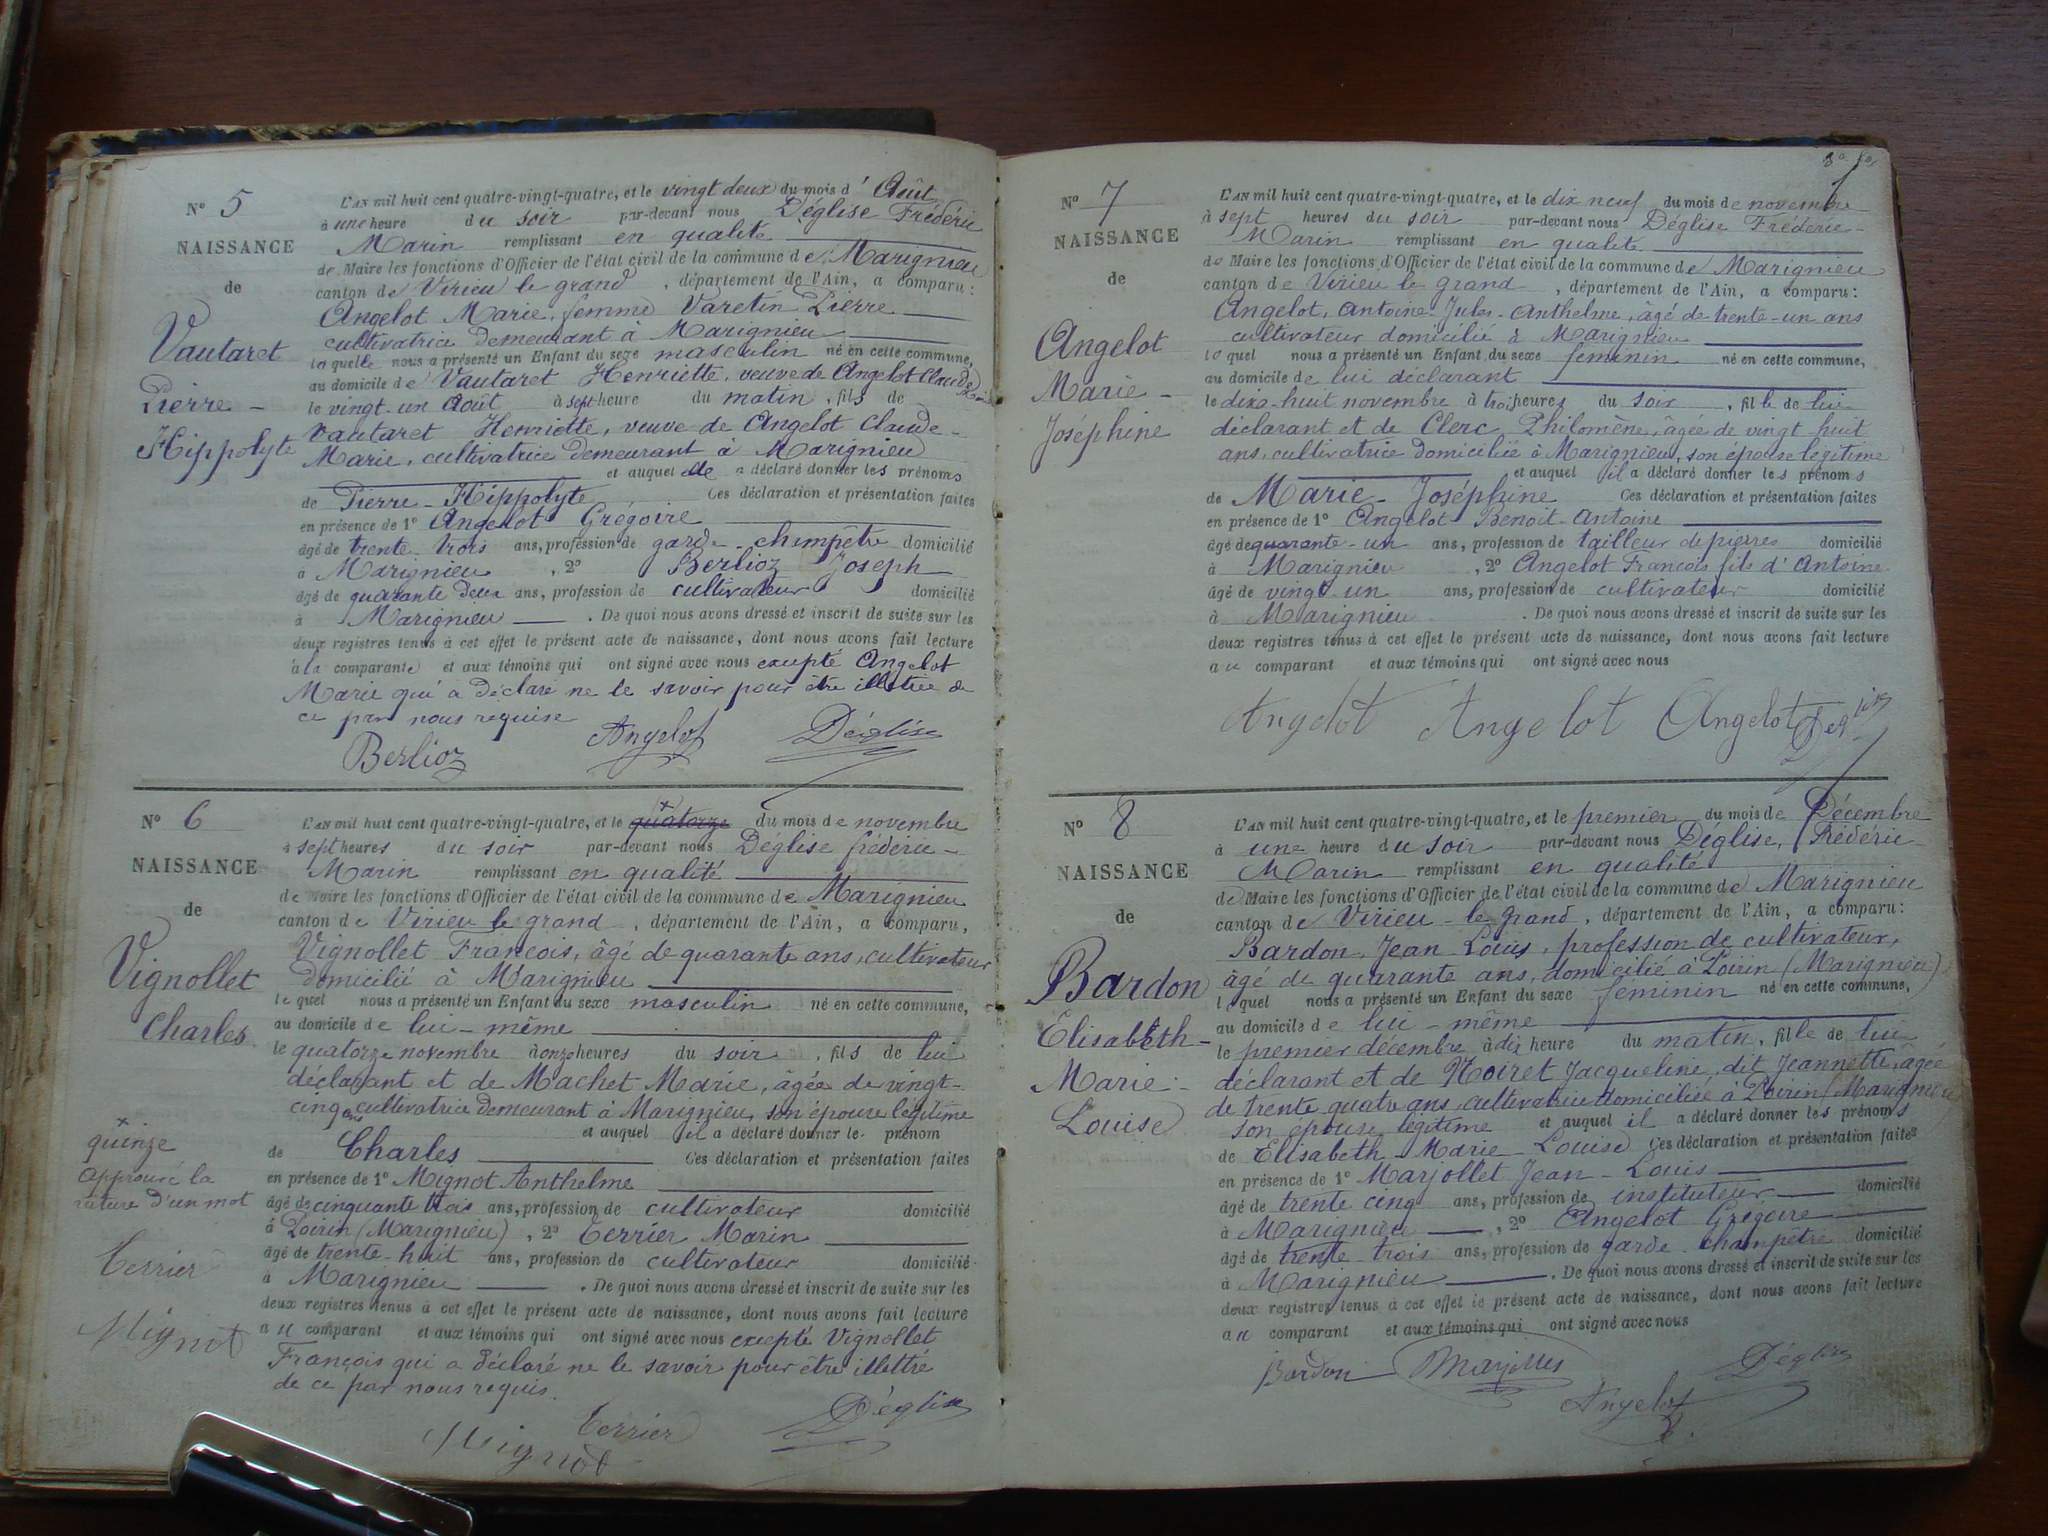 N° 5
NAISSANCE
de
Vautaret
Pierre -
Hippolyte
L'AN mil huit cent quatre-vingt-quatre, et le vingt deux du mois d'Août
à une heure du soir par-devant nous Déglise Frédéric
Marin remplissant en qualité
de Maire les fonctions d'Officier de l'état civil de la commune de Marignieu
canton de Virieu le grand, département de l'Ain, a comparu :
Angelot Marie, femme Varetin Pierre
cultivatrice demeurant à Marignieu
laquelle nous a présenté un Enfant du sexe masculin né en cette commune,
au domicile de Vautaret Henriette, veuve de Angelot Claude
le vingt-un Août à sept heure du matin, fils de
Vautaret Henriette, veuve de Angelot Claude-
Marie, cultivatrice demeurant à Marignieu
et auquel a déclaré donner les prénoms
de Pierre-Hippolyte Ces déclaration et présentation faites
en présence de 1° Angelot Grégoire
âgé de trente-trois ans, profession de garde-champêtre domicilié
à Marignieu, 2° Berlioz Joseph
âgé de quarante deux ans, profession de cultivateur domicilié
à Marignieu. De quoi nous avons dressé et inscrit de suite sur les
deux registres tenus à cet effet le présent acte de naissance, dont nous avons fait lecture
à la comparante et aux témoins qui ont signé avec nous excepté Angelot
Marie qui a déclaré ne le savoir pour être illetrée de
ce par nous requise
Berlioz Angelot Déglise
N° 6
NAISSANCE
de
Vignollet
Charles
x
quinze
Approuvé la
rature d'un mot
Terrier
Mignot
L'AN mil huit cent quatre-vingt-quatre, et le quatorze du mois de novembre
à sept heures du soir par-devant nous Déglise frédéric-
Marin remplissant en qualité
de Maire les fonctions d'Officier de l'état civil de la commune de Marignieu
canton de Virieu le grand, département de l'Ain, a comparu,
Vignollet François, âgé de quarante ans, cultivateur
domicilié à Marignieu
lequel nous a présenté un Enfant du sexe masculin né en cette commune,
au domicile de lui-même
le quatorze novembre à onze heures du soir, fils de lui
déclarant et de Machet Marie, âgée de vingt-
cinq ans cultivatrice demeurant à Marignieu, son épouse légitime
et auquel il a déclaré donner le prénom
de Charles Ces déclaration et présentation faites
en présence de 1° Mignot Anthelme
âgé de cinquante trois ans, profession de cultivateur domicilié
à Poirin (Marignieu), 2° Terrier Marin
âgé de trente-huit ans, profession de cultivateur domicilié
à Marignieu. De quoi nous avons dressé et inscrit de suite sur les
deux registres tenus à cet effet le présent acte de naissance, dont nous avons fait lecture
au comparant et aux témoins qui ont signé avec nous excepté Vignollet
François qui a déclaré ne le savoir pour être illettré
de ce par nous requis.
Mignot Terrier Déglise
N° 7
NAISSANCE
de
Angelot
Marie -
Joséphine
L'AN mil huit cent quatre-vingt-quatre, et le dix neuf du mois de novembre
à sept heures du soir par-devant nous Déglise Frédéric-
Marin remplissant en qualité
de Maire les fonctions d'Officier de l'état civil de la commune de Marignieu
canton de Virieu le grand, département de l'Ain, a comparu :
Angelot, Antoine-Jules-Anthelme, âgé de trente-un ans
cultivateur domicilié à Marignieu
lequel nous a présenté un Enfant du sexe feminin né en cette commune,
au domicile de lui déclarant
le dix-huit novembre à trois heures du soir, fille de lui
déclarant et de Clerc Philomène, âgée de vingt huit
ans, cultivatrice domiciliée à Marignieu, son épouse légitime
et auquel il a déclaré donner les prénoms
de Marie-Joséphine Ces déclaration et présentation faites
en présence de 1° Angelot Benoit-Antoine
âgé de quarante-un ans, profession de tailleur de pierres domicilié
à Marignieu, 2° Angelot François fils d'Antoine
âgé de vingt-un ans, profession de cultivateur domicilié
à Marignieu. De quoi nous avons dressé et inscrit de suite sur les
deux registres tenus à cet effet le présent acte de naissance, dont nous avons fait lecture
au comparant et aux témoins qui ont signé avec nous
Angelot Angelot Angelot Déglise
N° 8
NAISSANCE
de
Bardon
Elisabeth-
Marie-
Louise
L'AN mil huit cent quatre-vingt-quatre, et le premier du mois de Décembre
à une heure du soir par-devant nous Déglise, Frédéric
Marin remplissant en qualité
de Maire les fonctions d'Officier de l'état civil de la commune de Marignieu
canton de Virieu-le grand, département de l'Ain, a comparu :
Bardon, Jean Louis, profession de cultivateur,
âgé de quarante ans, domicilié à Poirin (Marignieu)
lequel nous a présenté un Enfant du sexe feminin né en cette commune,
au domicile de lui-même
le premier décembre à dix heure du matin, fille de lui
déclarant et de Noiret Jacqueline, dit Jeannette, âgée
de trente quatre ans, cultivatrice domiciliée à Poirin (Marignieu)
son épouse légitime et auquel il a déclaré donner les prénoms
de Elisabeth-Marie-Louise Ces déclaration et présentation faites
en présence de 1° Marjollet Jean-Louis
âgé de trente cinq ans, profession de instituteur domicilié
à Marignieu, 2° Angelot Gregoire
âgé de trente-trois ans, profession de garde-champêtre domicilié
à Marignieu. De quoi nous avons dressé et inscrit de suite sur les
deux registres tenus à cet effet le présent acte de naissance, dont nous avons fait lecture
au comparant et aux témoins qui ont signé avec nous
Bardon Marjollet Angelot Déglise